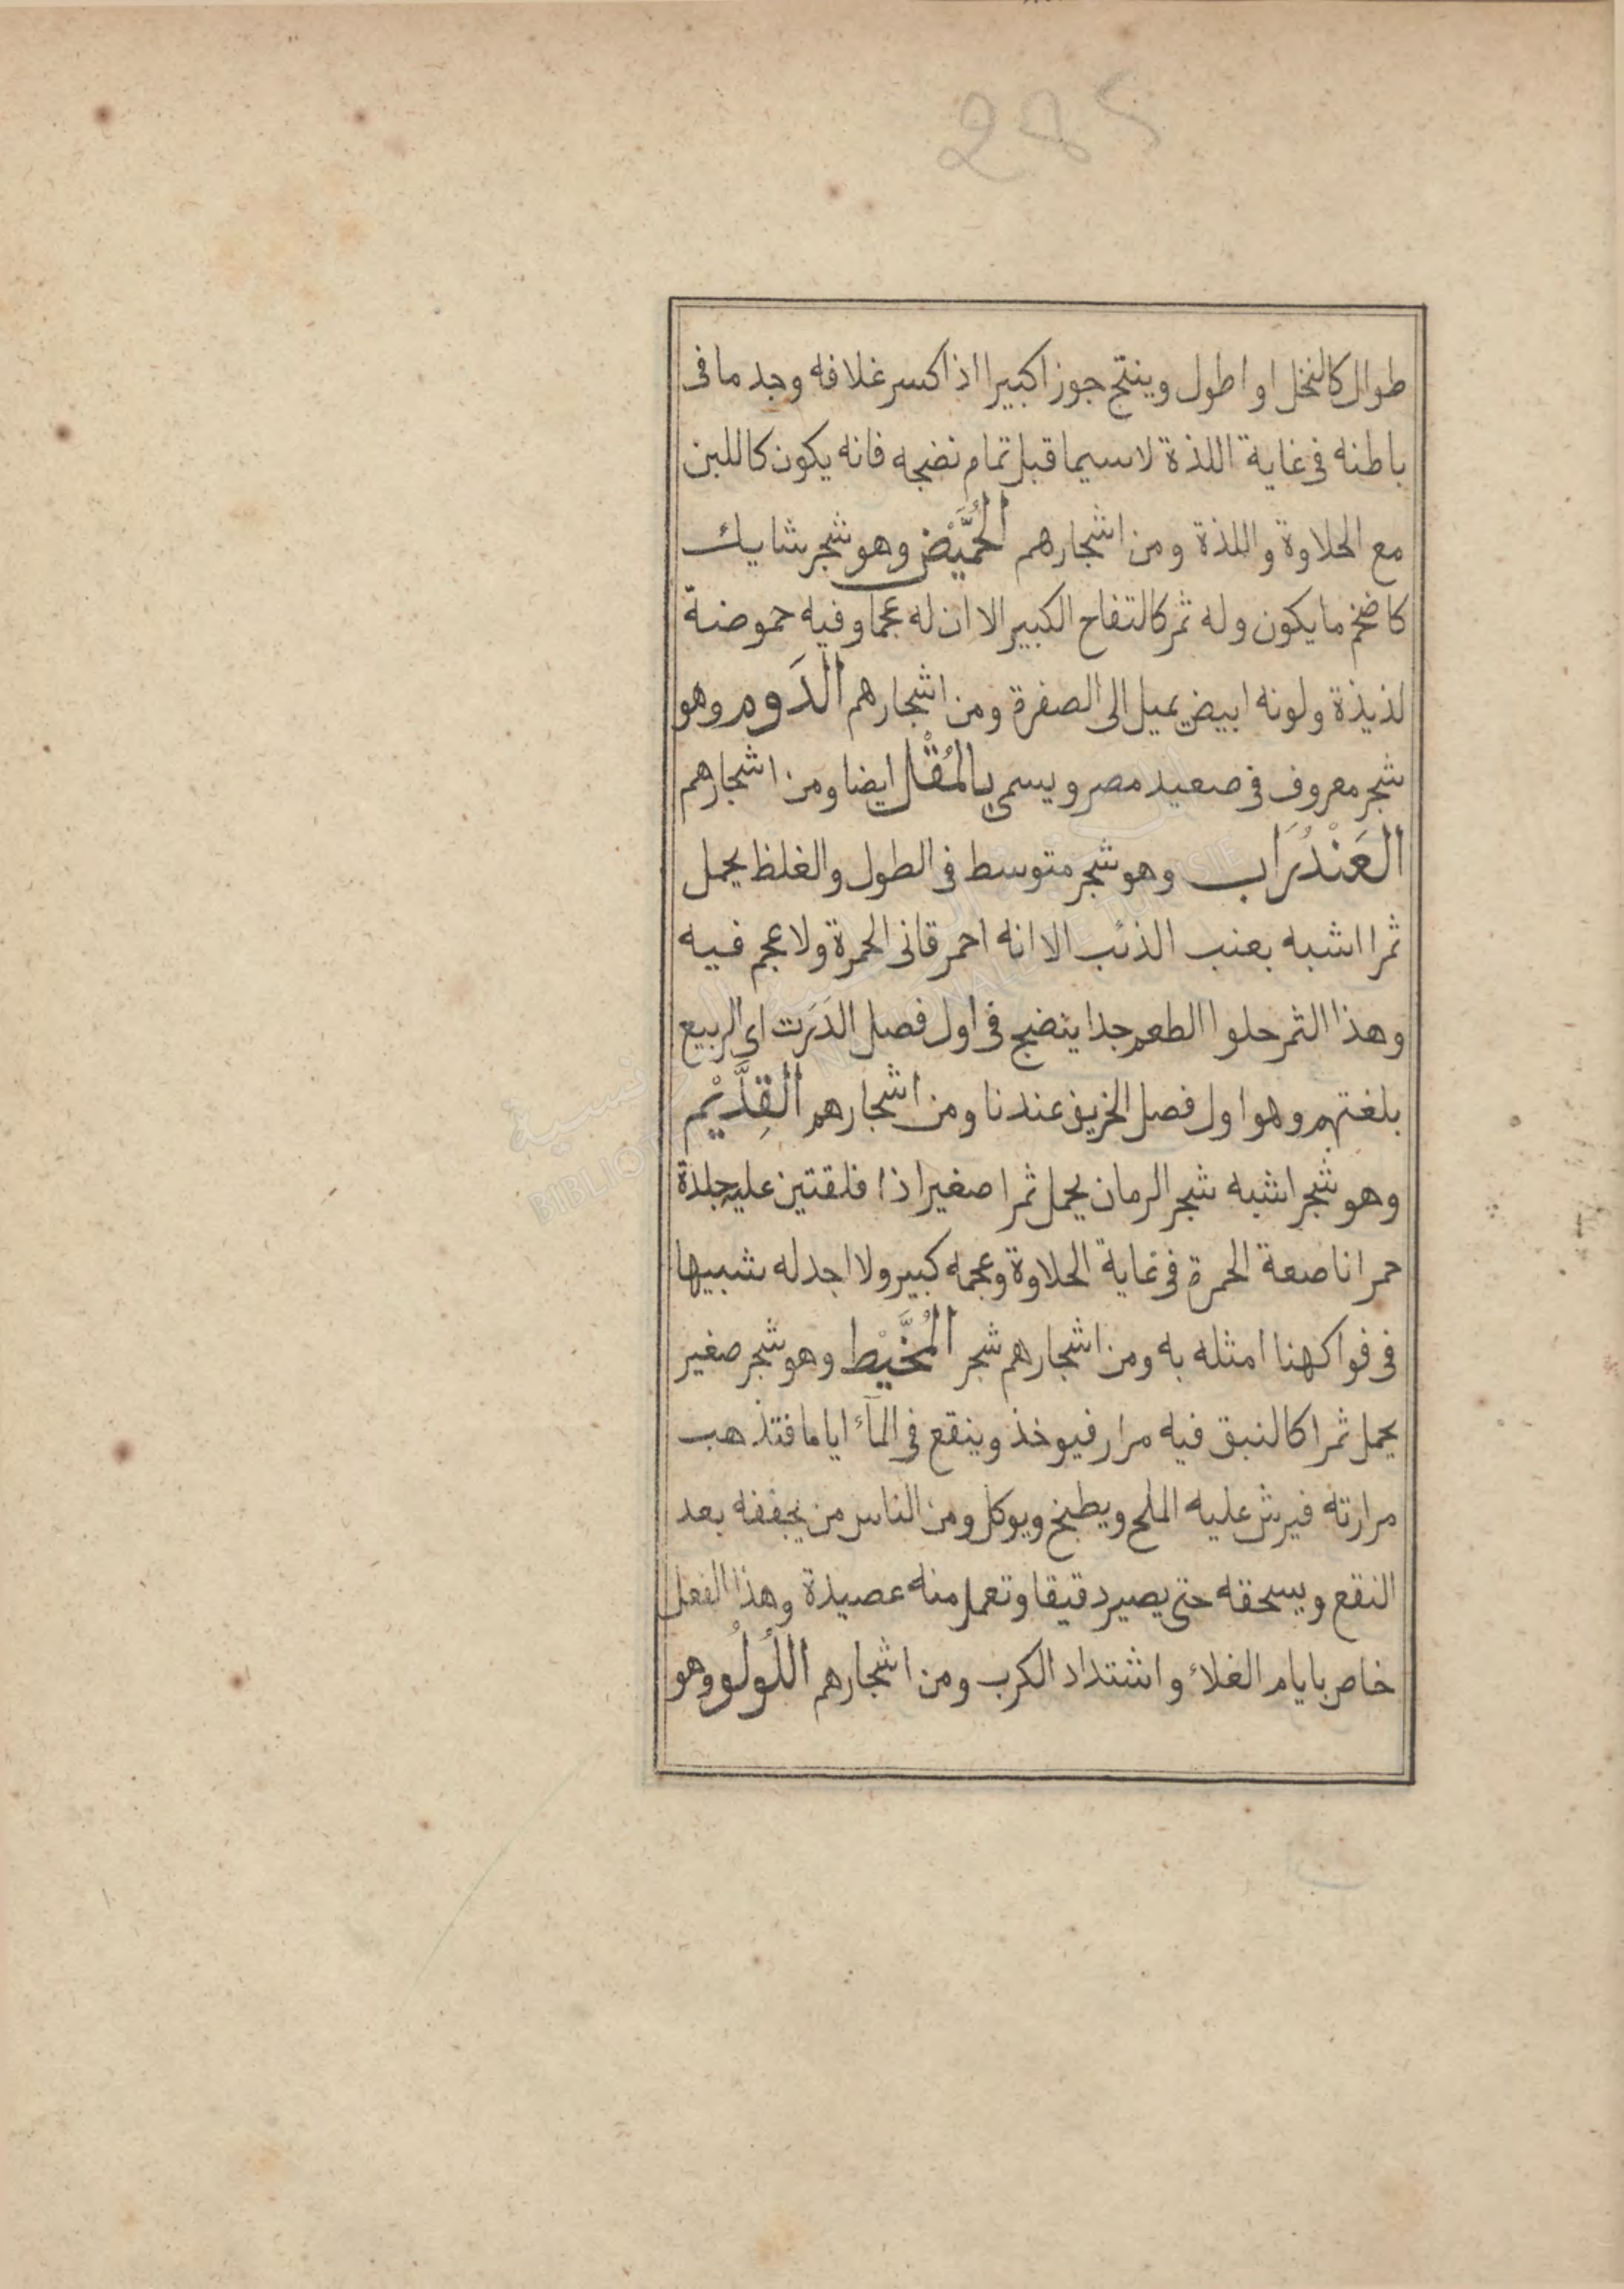 285
طوال كالنخل او اطول وينتج جوزا كبيرا اذا كسر غلافه وجد ما فى
باطنه فى غاية اللذة لاسيما قبل تمام نضجه فانه يكون كاللبن
مع الحلاوة واللذة ومن اشجارهم الحُمَّيْض وهو شجر شايك
كاضخم ما يكون وله ثمر كالتفاح الكبير الا ان له عجما وفيه حموضة
لذيذة ولونه ابيض يميل الى الصفرة ومن اشجارهم الدَوم وهو
شجر معروف فى صعيد مصر ويسمى بالمُقْل ايضا ومن اشجارهم
العَنْدُرَاب وهو شجر متوسط فى الطول والغلظ يحمل
ثمرا اشبه بعنب الذئب الا انه احمر قانى الحمرة ولا عجم فيه
وهذا الثمر حلوا الطعم جدا ينضج فى اول فصل الدَرَت اى الربيع
بلغتهم وهو اول فصل الخريف عندنا ومن اشجارهم القِدَّيْم
وهو شجر اشبه شجر الرمان يحمل ثمرا صغيرا ذا فلقتين عليه جلدة
حمرا ناصعة الحمرة فى غاية الحلاوة وعجمه كبير ولا اجد له شبيها
فى فواكهنا امثله به ومن اشجارهم شجر المُخَّيْط وهو شجر صغير
يحمل ثمرا كالنبق فيه مرار فيوخذ وينقع فى المآء اياما فتذهب
مرارته فيرش عليه الملح ويطبخ ويوكل ومن الناس من يجففه بعد
النقع ويسحقه حتى يصير دقيقا وتعمل منه عصيدة وهذا الفعل
خاص بايام الغلاء واشتداد الكرب ومن اشجارهم اللُولُو وهو
BIBLIOTHÈQUE NATIONALE DE TUNISIE